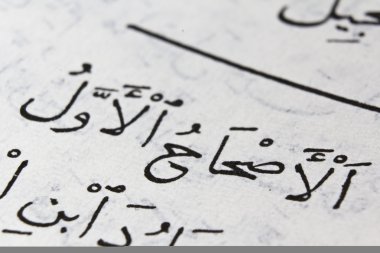 جِيل
اَلْأَصْحَاحُ ٱلْأَوَّلُ
دَاوُدَ ٱبْنِ